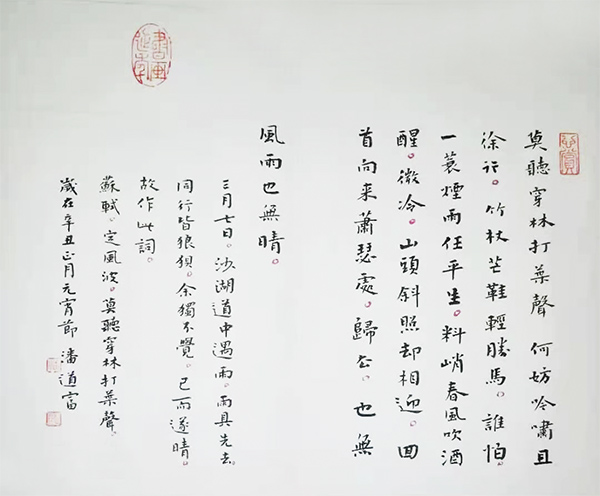 莫聽穿林打葉聲 何妨吟嘯且
徐行。竹杖芒鞋輕勝馬。誰怕。
一蓑煙雨任平生。料峭春風吹酒
醒。微冷。山頭斜照却相迎。回
首向来蕭瑟處。歸去。也無
風雨也無晴。
三月七日。沙湖道中遇雨。雨具先去。
同行皆狼狽。余獨不覺。已而遂晴。
故作此詞。
蘇軾。定風波。莫聽穿林打葉聲。
歲在辛丑正月元宵節 潘道富